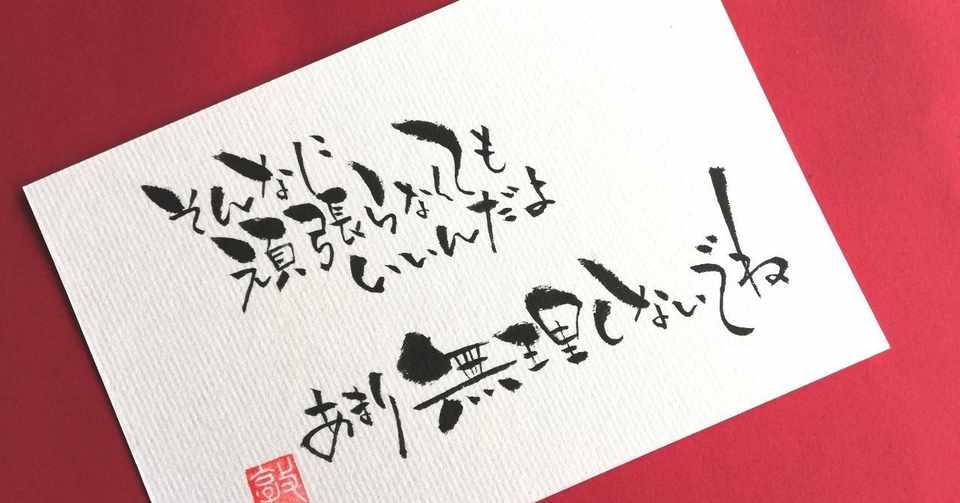 そんなに
頑張らなくても
いいんだよ
あまり無理しないでね
敦